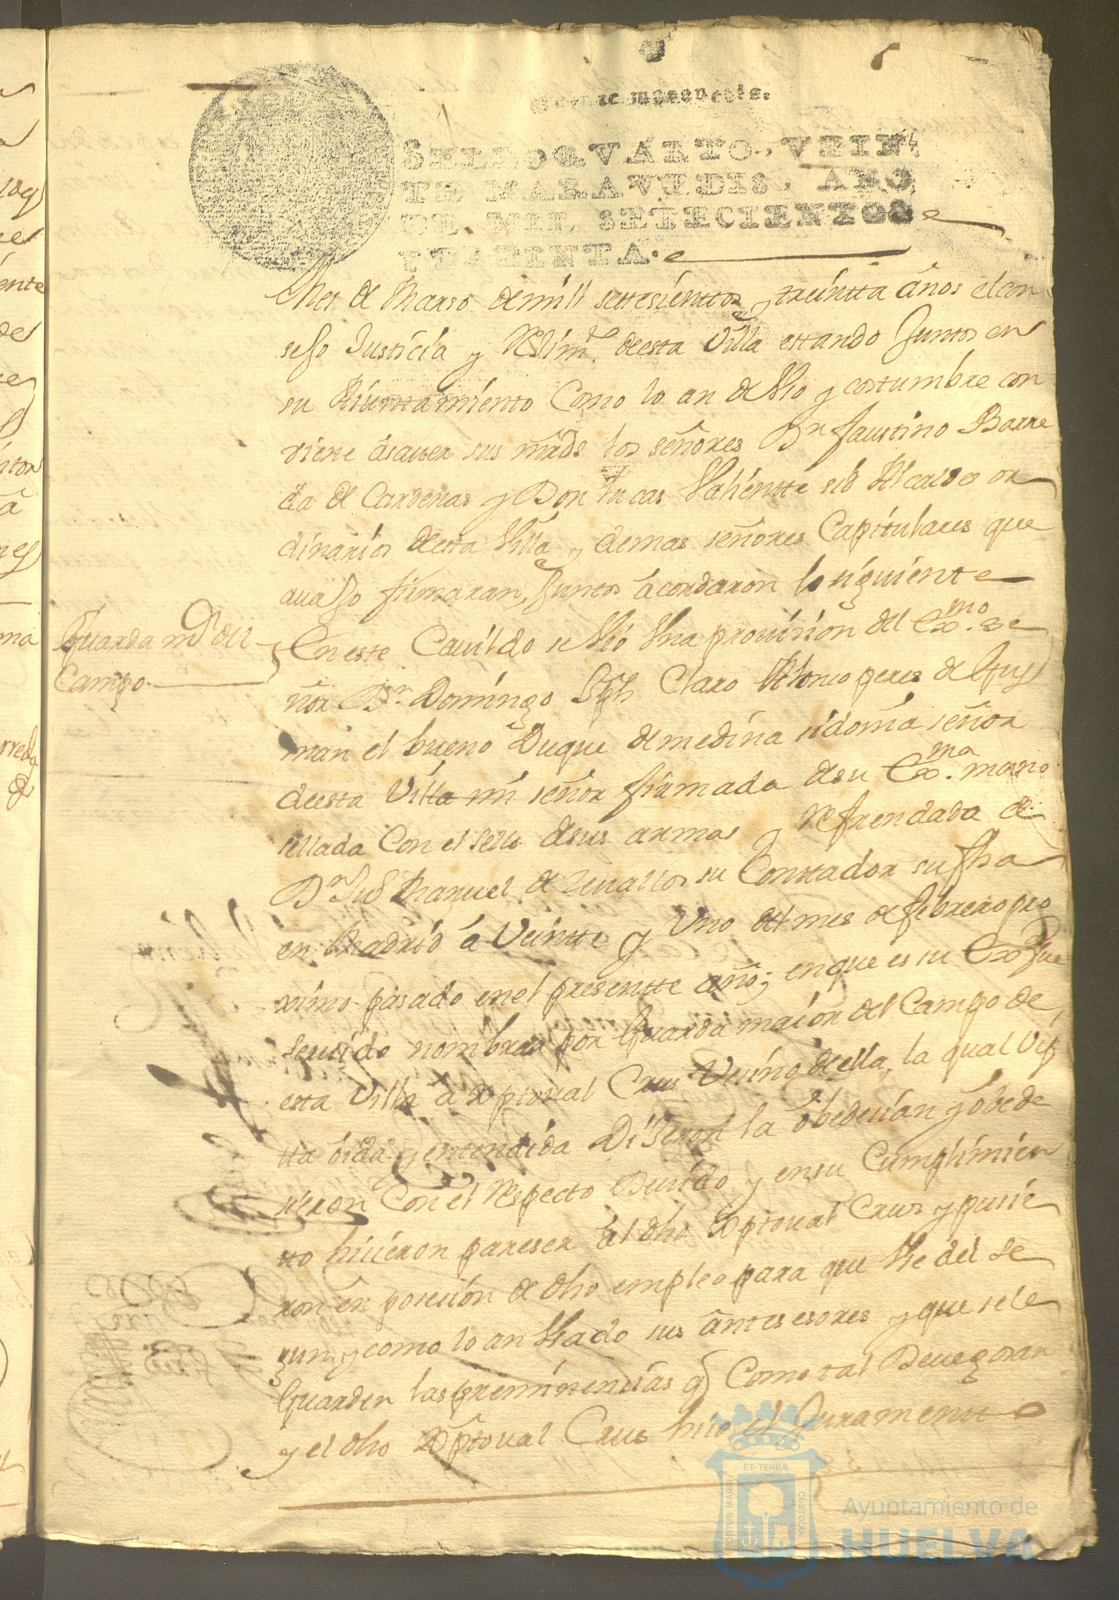 SELLO QVARTO, VEIN
TE MARAVEDIS, AÑO
DE MIL SETECIENTOS
TREINTA.
Mes de Marso de mill settesienttos y treintta años el con
sejo Justicia y Rejimto. de esta Villa estando Juntos en
su Aiuntamiento Como lo an de Uso y costumbre con
viene a saver sus mrds los señores Dn faustino Barre
da de Cardenas y Don Lucas Valientte sus Alcaldes or
dinarios desta Villa y demas señores Capitulares que
avajo firmaran, Juntos acordaron lo siguiente
Guarda mor del
Campo
En este Cavildo se vio Una provision del Exmo. se
ñor Dn. Domingo Jph Claro Alonso peres de Gus
man el bueno Duque de medina sidonia señor
de esta Villa mi señor firmada de su Exma. mano
sellada Con el sello de sus armas y Refrendada de
Dn Manuel de Zevallos su Conttador su fha
en Madrid a Veintte y Uno del mes de febrero pro
ximo pasado en el presentte año; en que es su Exa
servido nombrar por Guarda maior del Campo de
esta Villa a Xptoval Crus Vecino de ella, la qual vis
tta oida y entendida Dijeron la obedecian y obede
cieron Con el Respecto Devido y en su Cumplimien
tto hicieron pareser al dho Xptoval Crus y pusie
ron en posecion de dho empleo para que Use del se
gun y como lo an Usado sus antesesores y que se le
Guarden las preminencias q Como tal Deve gosar
y el dho Xptoval Crus hiso el Juramento
PORTUS MARIS
ET TERRÆ
CUSTODIA
Ayuntamiento de
HUELVA